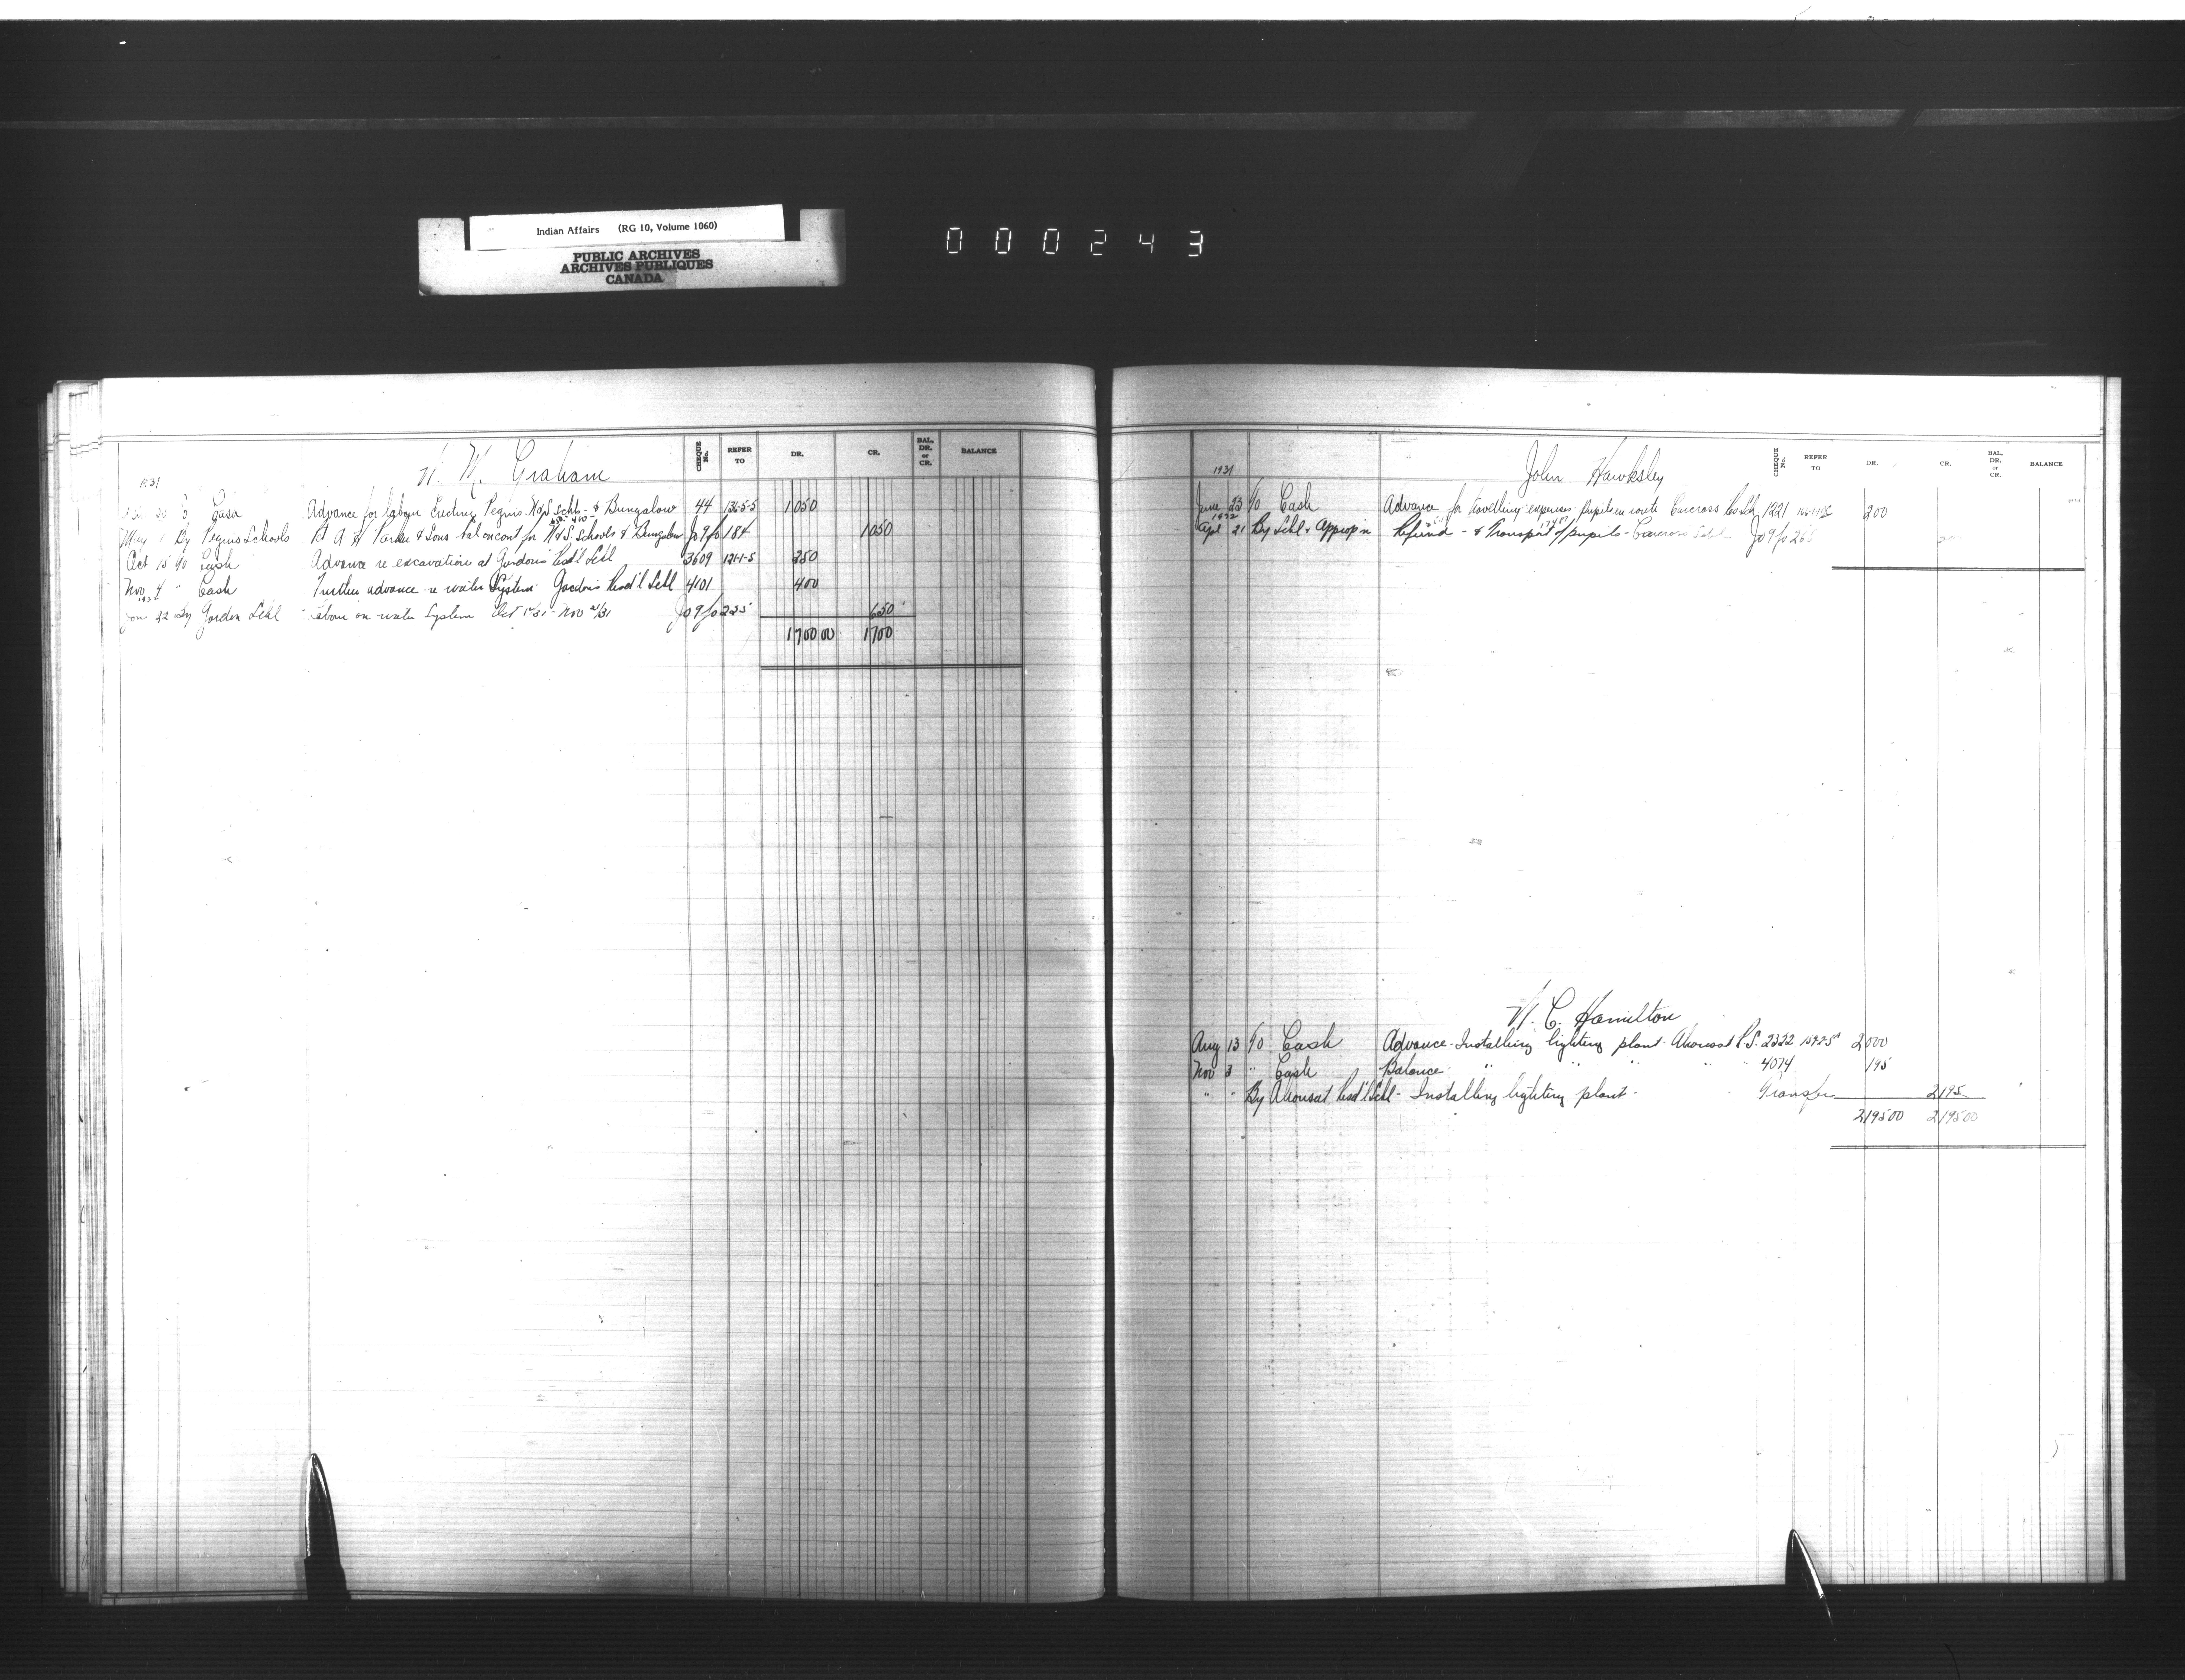 Indian Affairs (RG 10, Volume 1060)
PUBLIC ARCHIVES
ARCHIVES PUBLIQUES
CANADA
000243
W. M. Graham
CHEQUE No. REFER TO DR. CR. BAL. DR. or CR. BALANCE
1931
30 Cash Advance for labour Erecting Peguis N & S Schls & Bungalow 44 136-5-5 1050
May 1 By Peguis Schools A & H Parker & Sons bal on cont for N & S. Schools & Bungalow Jo 9 fo 184 1050
Oct 15 To Cash Advance re excavation at Gordon's Resd'l Schl 3609 121-1-5 250
Nov 4 " Cash Further advance re water System Gordon's Resd'l Schl 4101 400
Jan 22 By Gordon Schl Labour on water System Oct 1st 31 - Nov 21/31 Jo 9 fo 225 650
1700 00 1700
John Hawksley
CHEQUE No. REFER TO DR. CR. BAL. DR. or CR. BALANCE
1931
June 23 To Cash Advance for travelling expenses pupils en route Carcross Res Sch 1221 200
1932
Apl 21 By Schl Approp'n Refund - & Transport of pupils - Carcross Schl Jo 9 fo
W. C. Hamilton
Aug 13 To Cash Advance - Installing lighting plant Ahousat R.S. 2322 2000
Nov 3 " Cash Balance " " " " 4074 195
" " By Ahousat Resd'l Schl - Installing lighting plant - Transfer 2195
2195 00 2195 00